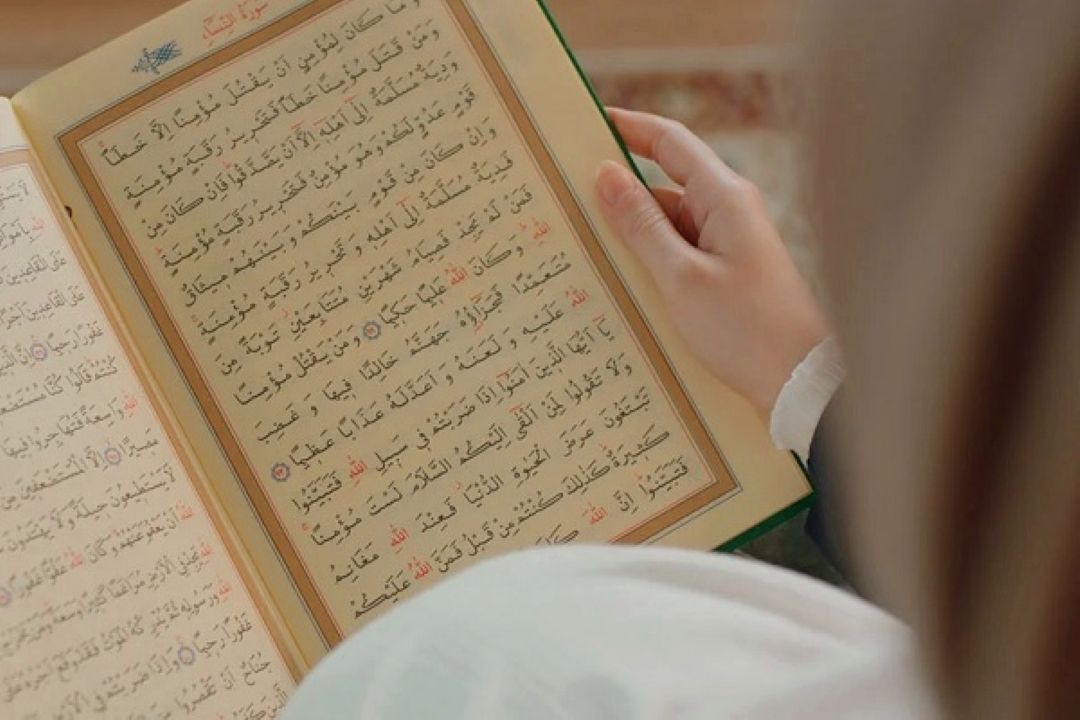 سورة النساء
وَمَا كَانَ لِمُؤْمِنٍ اَنْ يَقْتُلَ مُؤْمِنًا اِلَّا خَطَـًٔا
وَمَنْ قَتَلَ مُؤْمِنًا خَطَـًٔا فَتَحْرِيرُ رَقَبَةٍ مُؤْمِنَةٍ
وَدِيَةٌ مُسَلَّمَةٌ اِلٰٓى اَهْلِهٖٓ اِلَّٓا اَنْ يَصَّدَّقُوا فَاِنْ كَانَ مِنْ
قَوْمٍ عَدُوٍّ لَكُمْ وَهُوَ مُؤْمِنٌ فَتَحْرِيرُ رَقَبَةٍ مُؤْمِنَةٍ
وَاِنْ كَانَ مِنْ قَوْمٍ بَيْنَكُمْ وَبَيْنَهُمْ مِيثَاقٌ
فَدِيَةٌ مُسَلَّمَةٌ اِلٰٓى اَهْلِهٖ وَتَحْرِيرُ رَقَبَةٍ مُؤْمِنَةٍ
فَمَنْ لَمْ يَجِدْ فَصِيَامُ شَهْرَيْنِ مُتَتَابِعَيْنِ تَوْبَةً مِنَ
اللّٰهِ وَكَانَ اللّٰهُ عَلِيمًا حَكِيمًا ﴿٩٢﴾ وَمَنْ يَقْتُلْ مُؤْمِنًا
مُتَعَمِّدًا فَجَزَٓاؤُ۬هُ جَهَنَّمُ خَالِدًا فِيهَا وَغَضِبَ
اللّٰهُ عَلَيْهِ وَلَعَنَهُ وَاَعَدَّ لَهُ عَذَابًا عَظِيمًا ﴿٩٣﴾
يَٓا اَيُّهَا الَّذِينَ اٰمَنُٓوا اِذَا ضَرَبْتُمْ فِي سَبِيلِ اللّٰهِ فَتَبَيَّنُوا
وَلَا تَقُولُوا لِمَنْ اَلْقٰٓى اِلَيْكُمُ السَّلَامَ لَسْتَ مُؤْمِنًا
تَبْتَغُونَ عَرَضَ الْحَيٰوةِ الدُّنْيَا فَعِنْدَ اللّٰهِ مَغَانِمُ
كَثِيرَةٌ كَذٰلِكَ كُنْتُمْ مِنْ قَبْلُ فَمَنَّ اللّٰهُ عَلَيْكُمْ
فَتَبَيَّنُوا اِنَّ اللّٰهَ
عَلَى الْقَاعِدِينَ
عَلَى الْقَاعِدِينَ اَجْرًا
غَفُورًا رَحِيمًا ﴿٩٦﴾ اِنَّ الَّذِينَ
كُنْتُمْ قَالُوا كُنَّا
اللّٰهِ وَاسِعَةً فَتُهَاجِرُوا فِيهَا
مَصِيرًا ﴿٩٧﴾ اِلَّا الْمُسْتَضْعَفِينَ مِنَ
لَا يَسْتَطِيعُونَ حِيلَةً وَلَا يَهْتَدُونَ
اللّٰهُ اَنْ يَعْفُوَ عَنْهُمْ وَكَانَ اللّٰهُ عَفُوًّا غَفُورًا
اللّٰهِ يَجِدْ فِي الْاَرْضِ مُرَاغَمًا كَثِيرًا وَسَعَةً وَمَنْ يَخْرُجْ
اللّٰهِ وَرَسُولِهٖ ثُمَّ يُدْرِكْهُ الْمَوْتُ فَقَدْ وَقَعَ اَجْرُهُ عَلَى
غَفُورًا رَحِيمًا ﴿١٠٠﴾ وَاِذَا ضَرَبْتُمْ فِي الْاَرْضِ
جُنَاحٌ اَنْ تَقْصُرُوا مِنَ